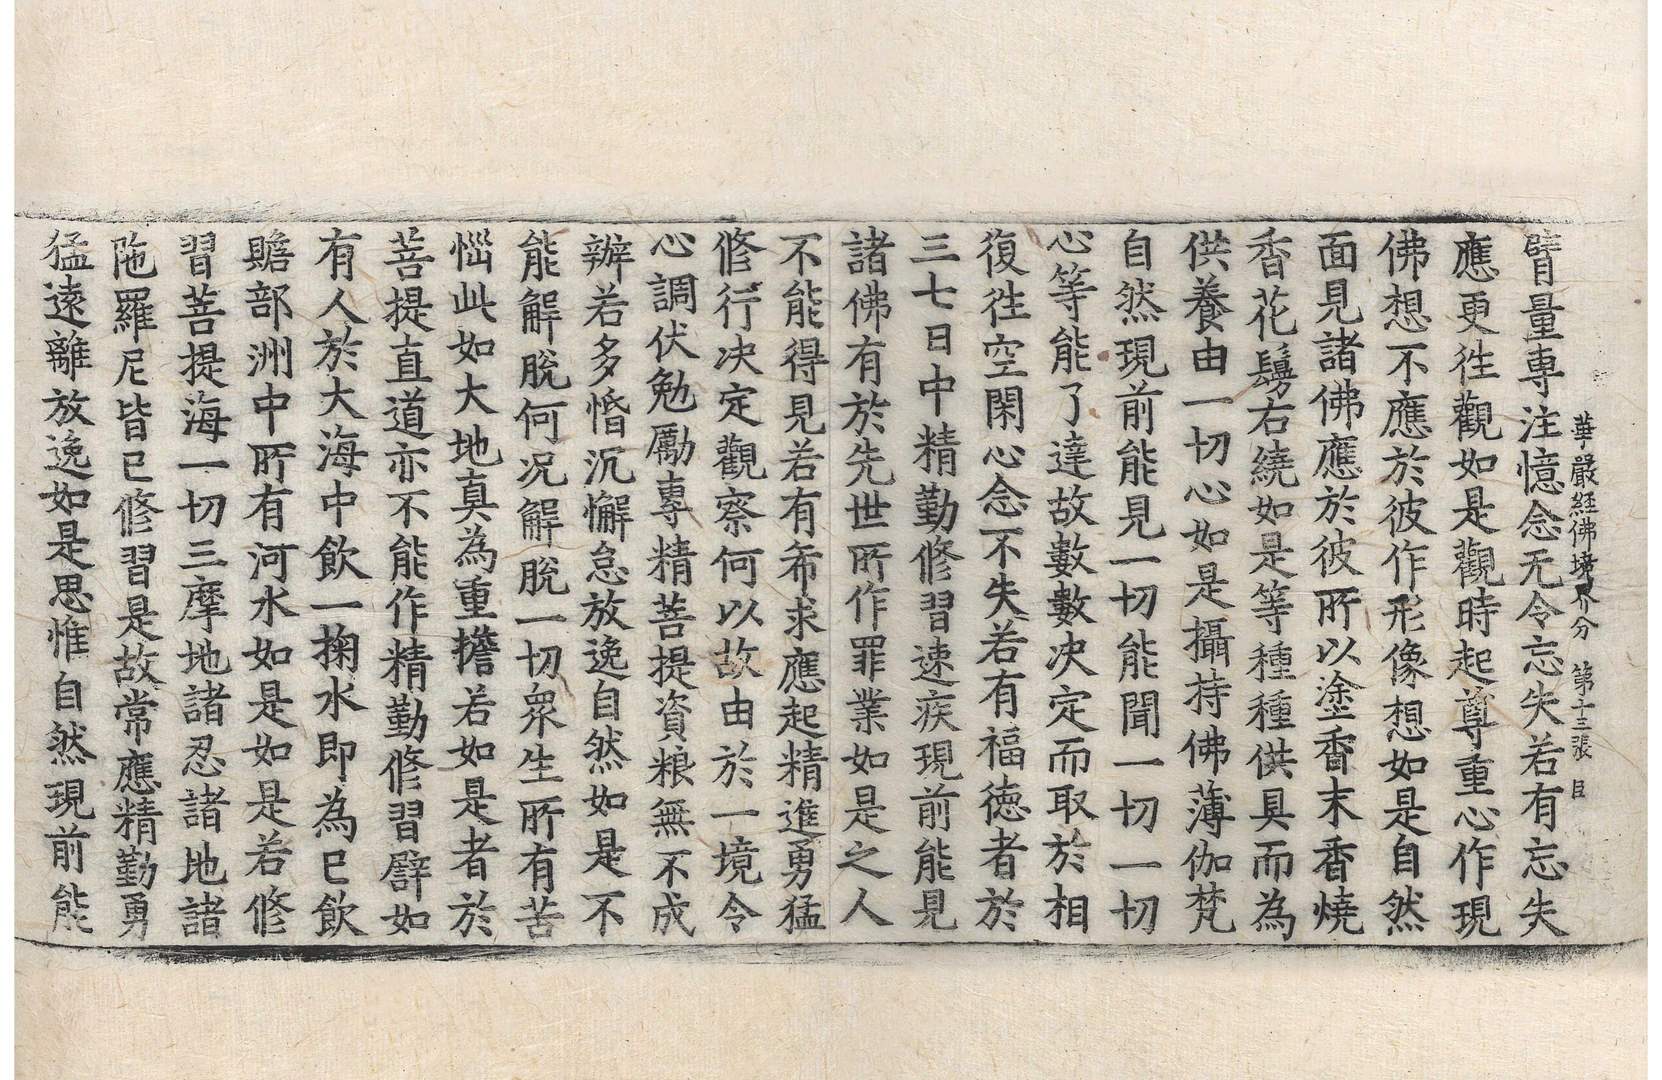 臂量專注憶念无令忘失若有忘失
華嚴經佛境界分　第十三張　目
應更往觀如是觀時起尊重心作現
佛想不應於彼作形像想如是自然
面見諸佛應於彼所以塗香末香燒
香花鬘右繞如是等種種供具而為
供養由一切心如是攝持佛薄伽梵
自然現前能見一切能聞一切一切
心等能了達故數數決定而取於相
復往空閑心念不失若有福德者於
三七日中精勤修習速疾現前能見
諸佛有於先世所作罪業如是之人
不能得見若有希求應起精進勇猛
修行决定觀察何以故由於一境令
心調伏勉勵專精菩提資粮無不成
辦若多惛沉懈怠放逸自然如是不
能解脫何况解脫一切衆生所有苦
惱此如大地真為重擔若如是者於
菩提直道亦不能作精勤修習譬如
有人於大海中飲一掬水即為已飲
贍部洲中所有河水如是如是若修
習菩提海一切三摩地諸忍諸地諸
陁羅尼皆已修習是故常應精勤勇
猛遠離放逸如是思惟自然現前能